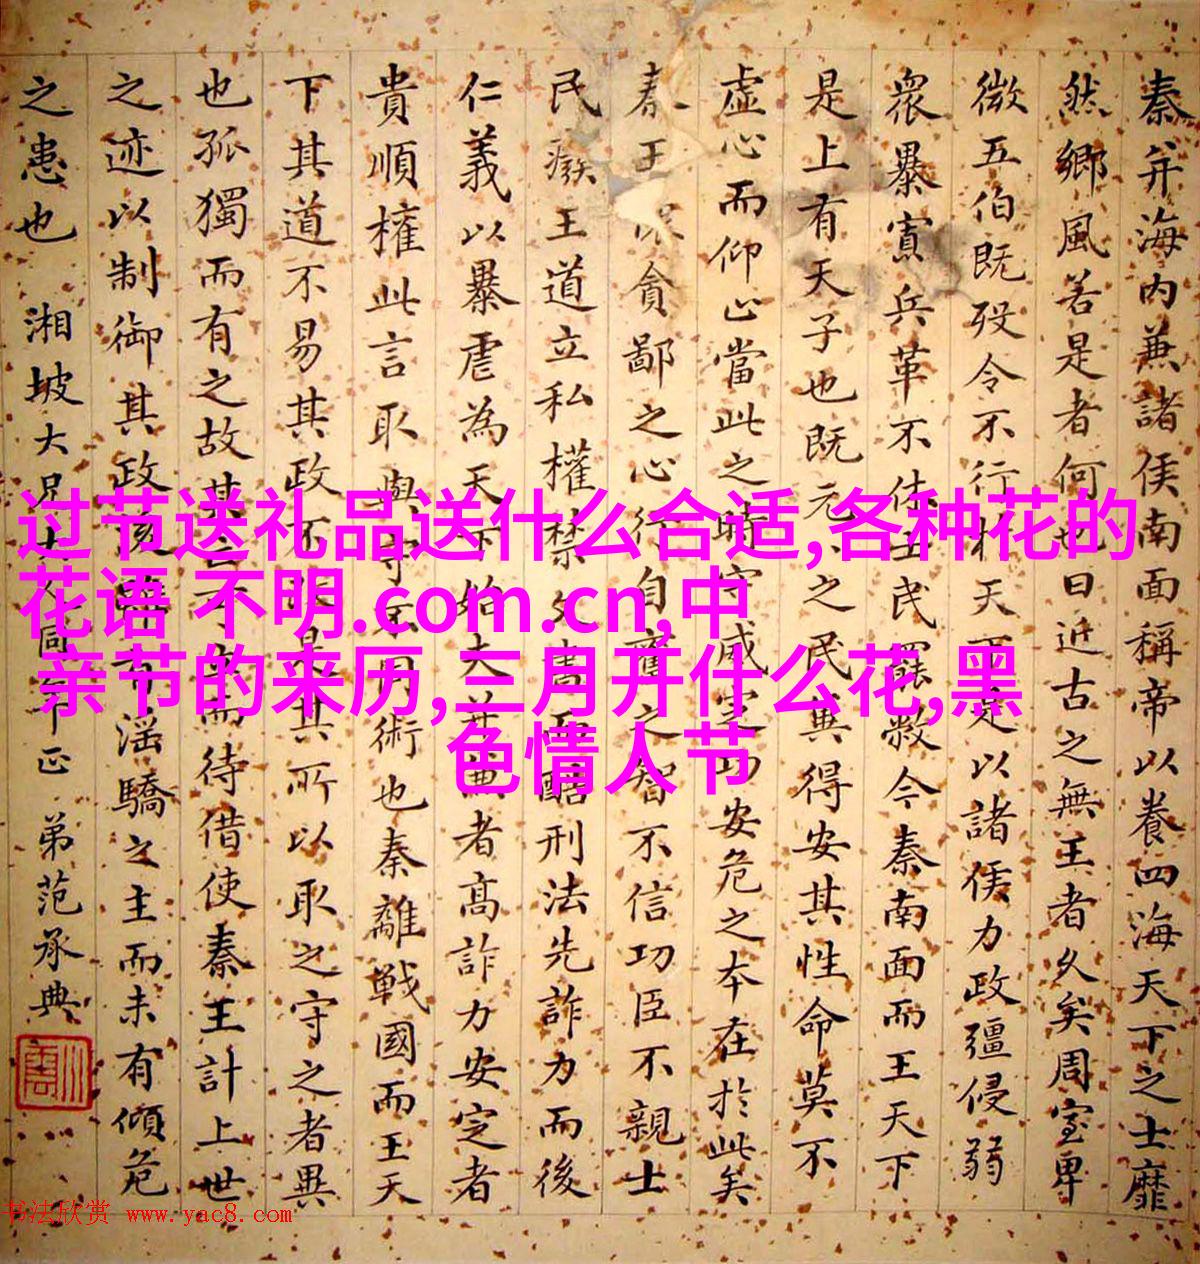 秦并海内兼諸侯南面稱帝以養四海天下之士靡
然鄉風若是者何也曰近古之無王者久矣周室卑
微五伯既歿令不行於天下是以諸侯力政彊侵弱
衆暴寡兵革不休士民罷敝今秦南面而王天下
是上有天子也既元元之民兾得安其性命莫不
虛心而仰上當此之時守威定功安危之本在於此矣
秦王貪鄙之心行自奮之智不信功臣不親士
民廢王道立私權禁文書而酷刑法先詐力而後
仁義以暴虐為天下始夫并兼者高詐力安定者
貴順權此言取與守不同術也秦離戰國而王天
下其道不易其政不改是其所以取之守之者異
也孤獨而有之故其亡可立而待借使秦王計上世
之迹以制御其政後雖有淫驕之主而未有傾危
之患也 湘坡大兄大人同年正 弟范承典
过节送礼品送什么合适,各种花的
花语 不明.com.cn,中
亲节的来历,三月开什么花,黑
色情人节
书法欣赏 www.yac8.com